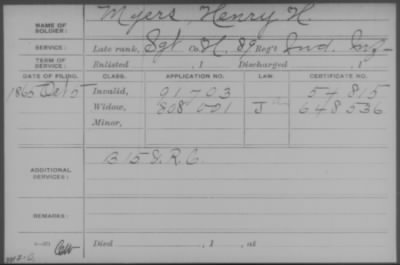 NAME OF SOLDIER: Myers, Henry H.
SERVICE: Late rank, Sgt Co. H, 89 Reg't Ind. Inf
TERM OF SERVICE: Enlisted , 1 Discharged , 1
DATE OF FILING. CLASS. APPLICATION NO. LAW. CERTIFICATE NO.
1865 Oct 5 Invalid, 91703 54815
Widow, 808001 J 648536
Minor,
ADDITIONAL SERVICES: B 15 V.R.C.
REMARKS:
Died , 1 , at